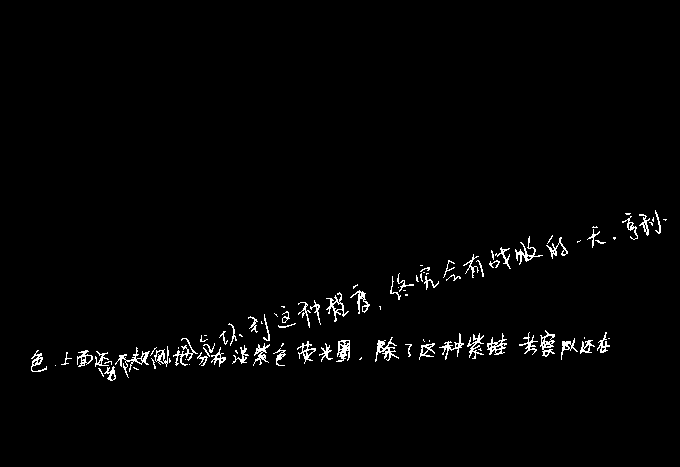 坏到这种程度,终究会有战败的一天.亨利·
色.上面还不规则地分布淡紫色荧光圈,除了这种紫蛙 考察队还在